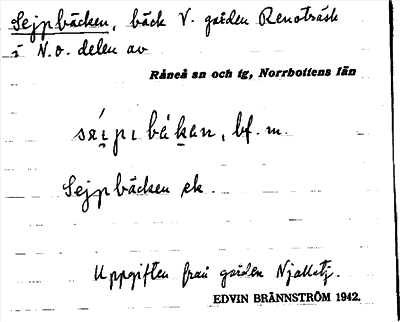 Sejpbäcken, bäck V. gården Renoträsk
i N.o. delen av
Råneå sn och tg, Norrbottens län
bf. m.
Sejpbäcken ek.
Uppgiften från gården
EDVIN BRÄNNSTRÖM 1942.